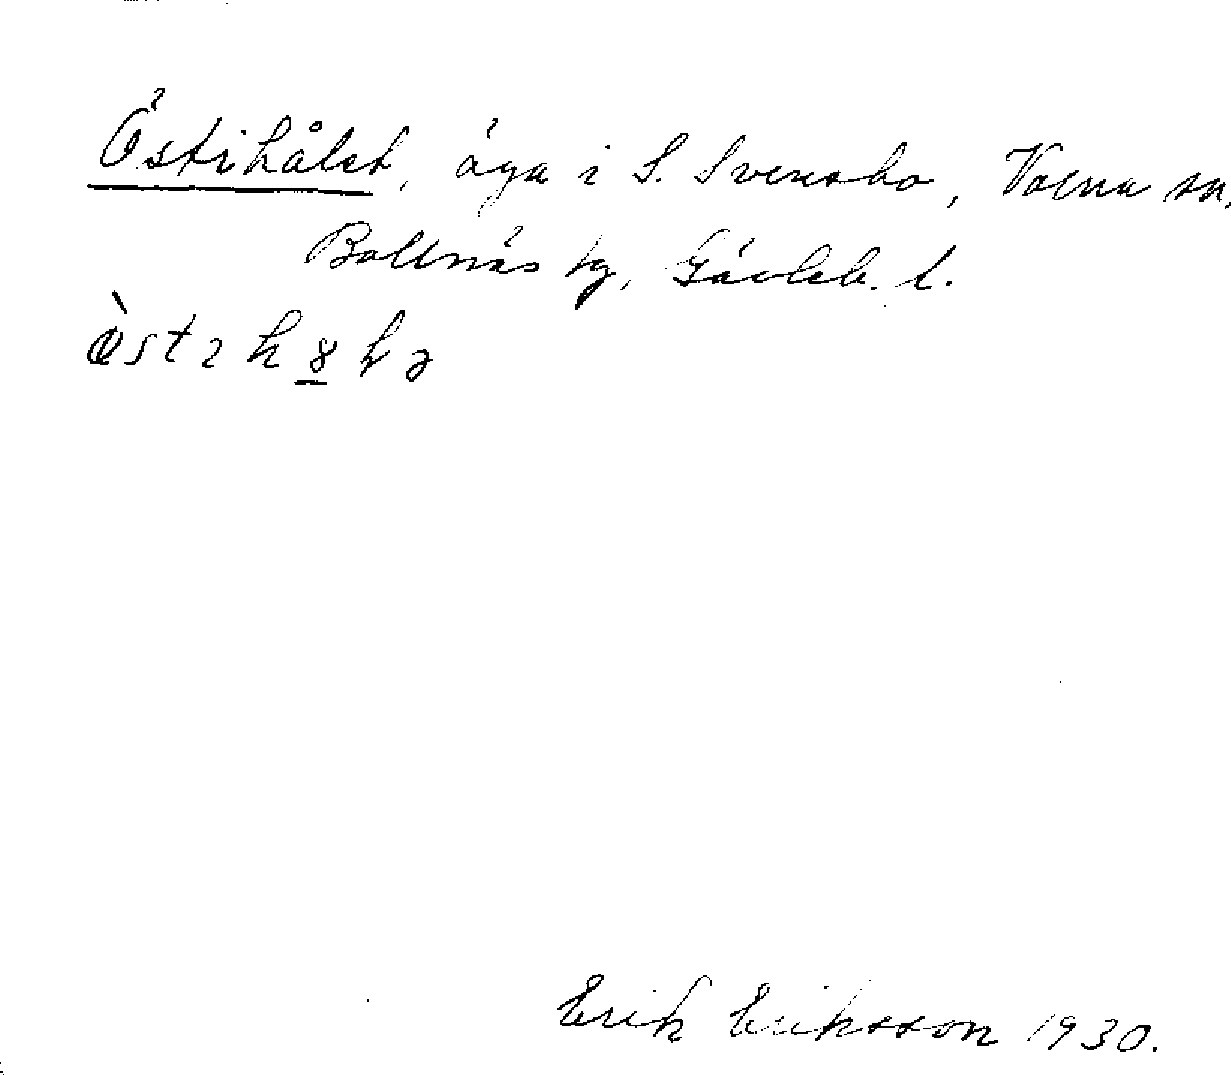 Östihålet, äga i S. Svensbo, Voxna sn,
Bollnäs tg, Gävleb. l.
Erik Eriksson 1930.